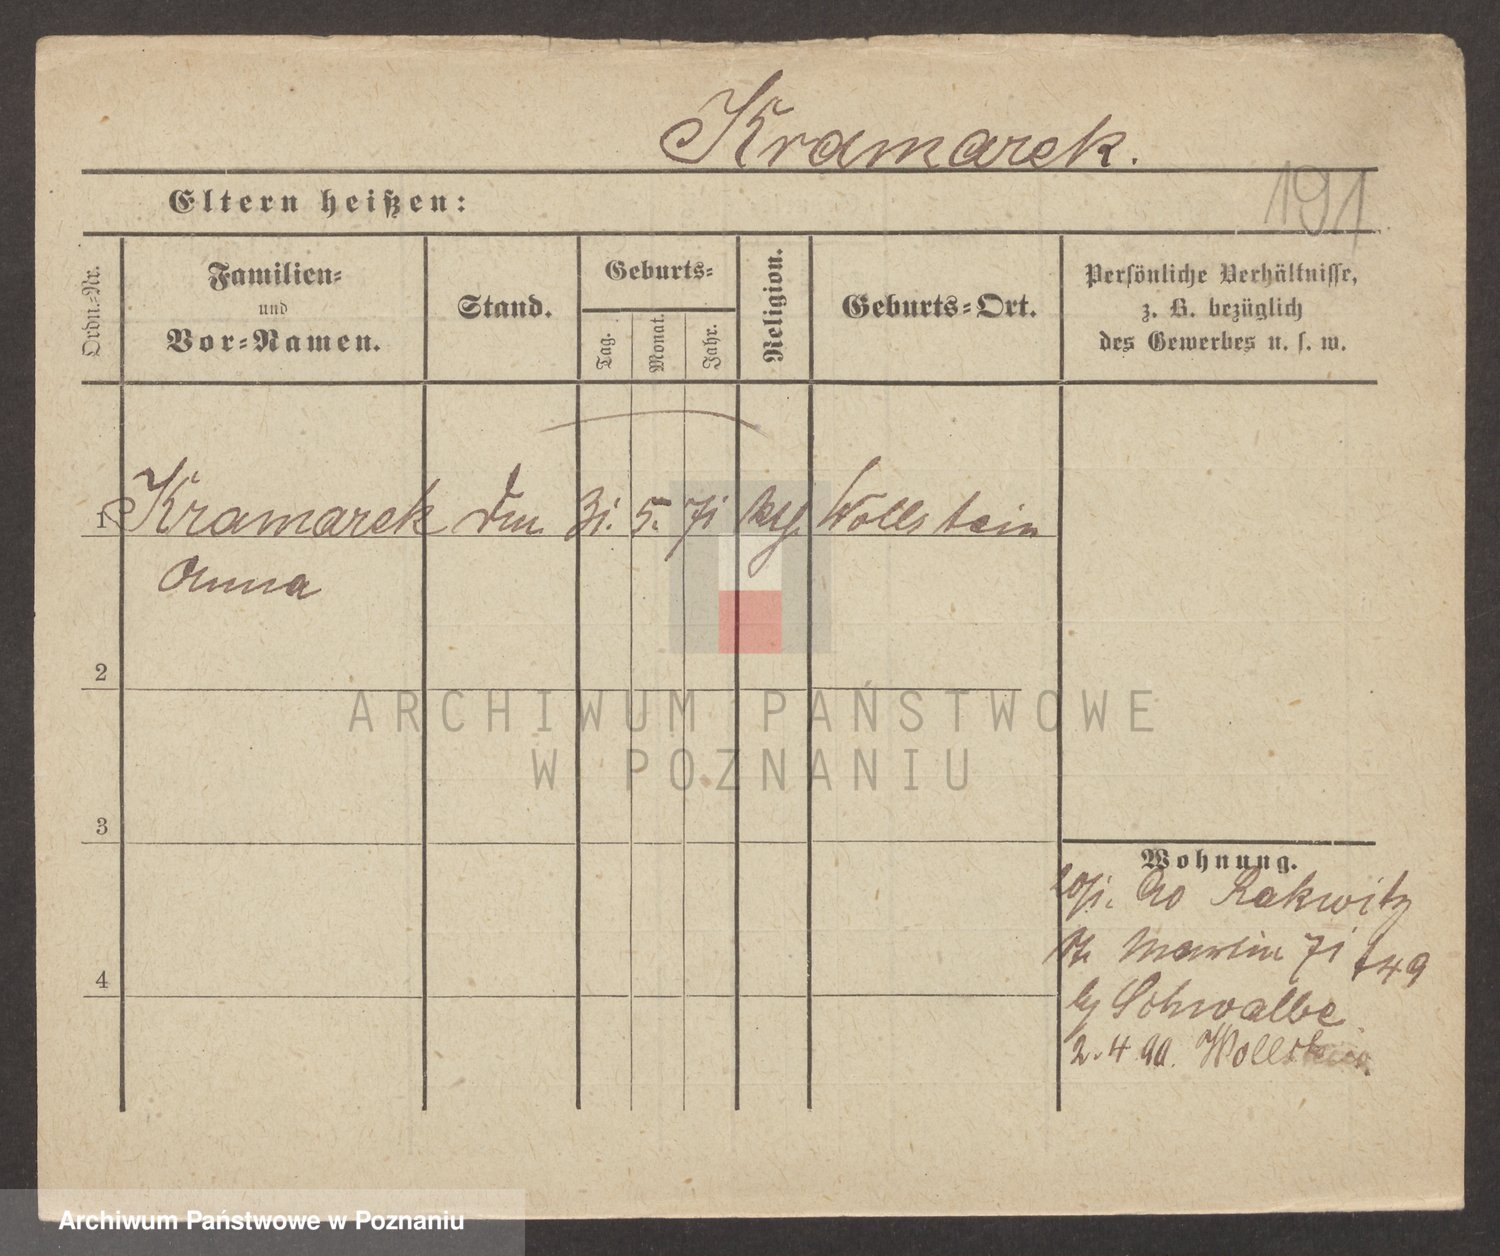 Kramarek.
191
Eltern heißen:
Ordn.-Nr.
Familien-
und
Vor-Namen.
Stand.
Geburts-
Tag.
Monat.
Jahr.
Religion.
Geburts-Ort.
Persönliche Verhältnisse,
z. B. bezüglich
des Gewerbes u. s. w.
1 Kramarek 31. 5. 71 Wollstein
Anna
2
3
4
Wohnung.
Rakwitz
Martin 71 t49
Schwalbe
2.4.90. Wollstein
ARCHIWUM PAŃSTWOWE
W POZNANIU
Archiwum Państwowe w Poznaniu